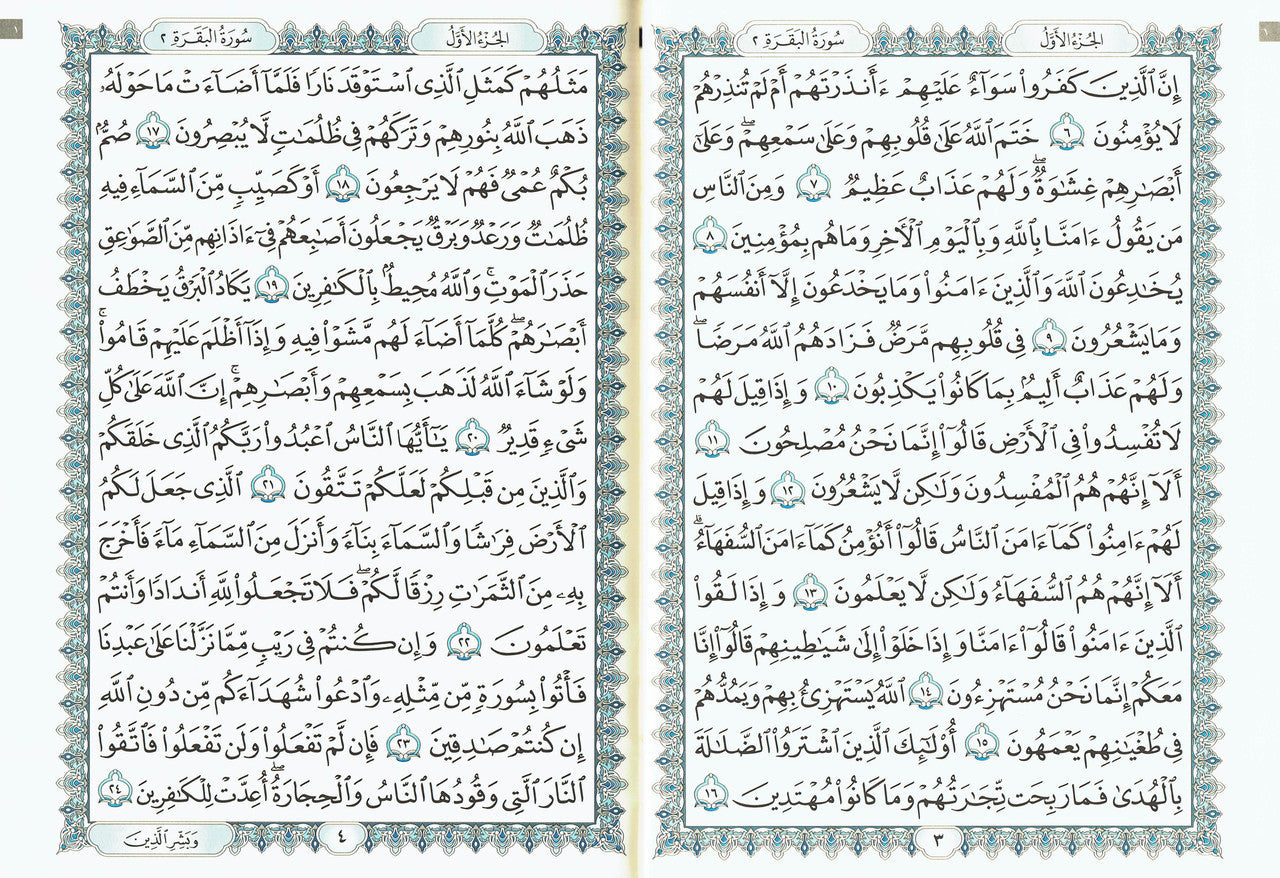 الجزء الأول
سورة البقرة ٢
إِنَّ ٱلَّذِينَ كَفَرُوا۟ سَوَآءٌ عَلَيْهِمْ ءَأَنذَرْتَهُمْ أَمْ لَمْ تُنذِرْهُمْ
لَا يُؤْمِنُونَ ٦ خَتَمَ ٱللَّهُ عَلَىٰ قُلُوبِهِمْ وَعَلَىٰ سَمْعِهِمْ ۖ وَعَلَىٰٓ
أَبْصَٰرِهِمْ غِشَٰوَةٌ ۖ وَلَهُمْ عَذَابٌ عَظِيمٌ ٧ وَمِنَ ٱلنَّاسِ
مَن يَقُولُ ءَامَنَّا بِٱللَّهِ وَبِٱلْيَوْمِ ٱلْأَخِرِ وَمَا هُم بِمُؤْمِنِينَ ٨
يُخَٰدِعُونَ ٱللَّهَ وَٱلَّذِينَ ءَامَنُوا۟ وَمَا يَخْدَعُونَ إِلَّآ أَنفُسَهُمْ
وَمَا يَشْعُرُونَ ٩ فِى قُلُوبِهِم مَّرَضٌ فَزَادَهُمُ ٱللَّهُ مَرَضًا ۖ
وَلَهُمْ عَذَابٌ أَلِيمٌۢ بِمَا كَانُوا۟ يَكْذِبُونَ ١٠ وَإِذَا قِيلَ لَهُمْ
لَا تُفْسِدُوا۟ فِى ٱلْأَرْضِ قَالُوٓا۟ إِنَّمَا نَحْنُ مُصْلِحُونَ ١١
أَلَآ إِنَّهُمْ هُمُ ٱلْمُفْسِدُونَ وَلَٰكِن لَّا يَشْعُرُونَ ١٢ وَإِذَا قِيلَ
لَهُمْ ءَامِنُوا۟ كَمَآ ءَامَنَ ٱلنَّاسُ قَالُوٓا۟ أَنُؤْمِنُ كَمَآ ءَامَنَ ٱلسُّفَهَآءُ ۗ
أَلَآ إِنَّهُمْ هُمُ ٱلسُّفَهَآءُ وَلَٰكِن لَّا يَعْلَمُونَ ١٣ وَإِذَا لَقُوا۟
ٱلَّذِينَ ءَامَنُوا۟ قَالُوٓا۟ ءَامَنَّا وَإِذَا خَلَوْا۟ إِلَىٰ شَيَٰطِينِهِمْ قَالُوٓا۟ إِنَّا
مَعَكُمْ إِنَّمَا نَحْنُ مُسْتَهْزِءُونَ ١٤ ٱللَّهُ يَسْتَهْزِئُ بِهِمْ وَيَمُدُّهُمْ
فِى طُغْيَٰنِهِمْ يَعْمَهُونَ ١٥ أُو۟لَٰٓئِكَ ٱلَّذِينَ ٱشْتَرَوُا۟ ٱلضَّلَٰلَةَ
بِٱلْهُدَىٰ فَمَا رَبِحَت تِّجَٰرَتُهُمْ وَمَا كَانُوا۟ مُهْتَدِينَ ١٦
٣
الجزء الأول
سورة البقرة ٢
مَثَلُهُمْ كَمَثَلِ ٱلَّذِى ٱسْتَوْقَدَ نَارًا فَلَمَّآ أَضَآءَتْ مَا حَوْلَهُۥ
ذَهَبَ ٱللَّهُ بِنُورِهِمْ وَتَرَكَهُمْ فِى ظُلُمَٰتٍ لَّا يُبْصِرُونَ ١٧ صُمٌّۢ
بُكْمٌ عُمْىٌ فَهُمْ لَا يَرْجِعُونَ ١٨ أَوْ كَصَيِّبٍ مِّنَ ٱلسَّمَآءِ فِيهِ
ظُلُمَٰتٌ وَرَعْدٌ وَبَرْقٌ يَجْعَلُونَ أَصَٰبِعَهُمْ فِىٓ ءَاذَانِهِم مِّنَ ٱلصَّوَٰعِقِ
حَذَرَ ٱلْمَوْتِ ۚ وَٱللَّهُ مُحِيطٌۢ بِٱلْكَٰفِرِينَ ١٩ يَكَادُ ٱلْبَرْقُ يَخْطَفُ
أَبْصَٰرَهُمْ ۖ كُلَّمَآ أَضَآءَ لَهُم مَّشَوْا۟ فِيهِ وَإِذَآ أَظْلَمَ عَلَيْهِمْ قَامُوا۟ ۚ
وَلَوْ شَآءَ ٱللَّهُ لَذَهَبَ بِسَمْعِهِمْ وَأَبْصَٰرِهِمْ ۚ إِنَّ ٱللَّهَ عَلَىٰ كُلِّ
شَىْءٍ قَدِيرٌ ٢٠ يَٰٓأَيُّهَا ٱلنَّاسُ ٱعْبُدُوا۟ رَبَّكُمُ ٱلَّذِى خَلَقَكُمْ
وَٱلَّذِينَ مِن قَبْلِكُمْ لَعَلَّكُمْ تَتَّقُونَ ٢١ ٱلَّذِى جَعَلَ لَكُمُ
ٱلْأَرْضَ فِرَٰشًا وَٱلسَّمَآءَ بِنَآءً وَأَنزَلَ مِنَ ٱلسَّمَآءِ مَآءً فَأَخْرَجَ
بِهِۦ مِنَ ٱلثَّمَرَٰتِ رِزْقًا لَّكُمْ ۖ فَلَا تَجْعَلُوا۟ لِلَّهِ أَندَادًا وَأَنتُمْ
تَعْلَمُونَ ٢٢ وَإِن كُنتُمْ فِى رَيْبٍ مِّمَّا نَزَّلْنَا عَلَىٰ عَبْدِنَا
فَأْتُوا۟ بِسُورَةٍ مِّن مِّثْلِهِۦ وَٱدْعُوا۟ شُهَدَآءَكُم مِّن دُونِ ٱللَّهِ
إِن كُنتُمْ صَٰدِقِينَ ٢٣ فَإِن لَّمْ تَفْعَلُوا۟ وَلَن تَفْعَلُوا۟ فَٱتَّقُوا۟
ٱلنَّارَ ٱلَّتِى وَقُودُهَا ٱلنَّاسُ وَٱلْحِجَارَةُ ۖ أُعِدَّتْ لِلْكَٰفِرِينَ ٢٤
٤
وَبَشِّرِ ٱلَّذِينَ